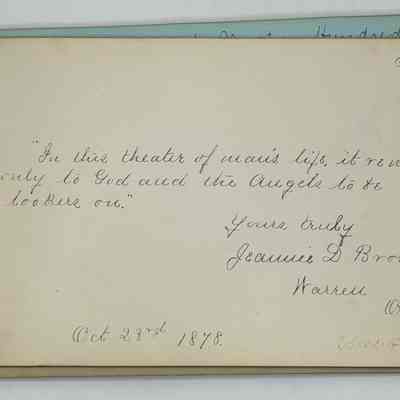 Hundred
"In this theater of man's life, it
only to God and the Angels to be
lookers on."
Yours truly
Jeannie D Bro
Warren
O
Oct 23rd 1878.